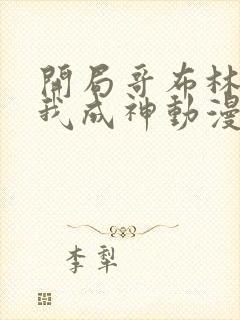 開局哥布林
我成神動漫
李犁